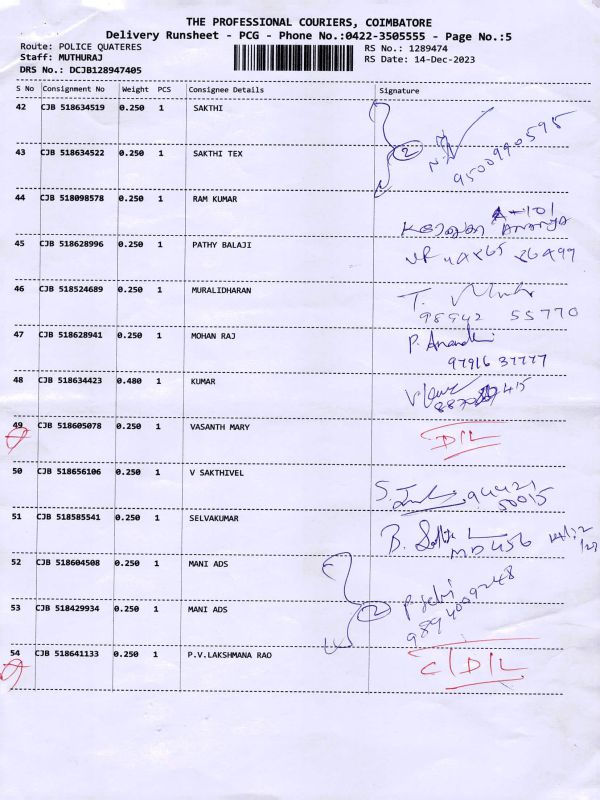 THE PROFESSIONAL COURIERS, COIMBATORE
Delivery Runsheet - PCG - Phone No.:0422-3505555 - Page No.:5
Route: POLICE QUATERES RS No.: 1289474
Staff: MUTHURAJ RS Date: 14-Dec-2023
DRS No.: DCJB128947405
S No Consignment No Weight PCS Consignee Details Signature
42 CJB 518634519 0.250 1 SAKTHI
2 9500990595
43 CJB 518634522 0.250 1 SAKTHI TEX
44 CJB 518098578 0.250 1 RAM KUMAR
A-101
ANANYA
45 CJB 518628996 0.250 1 PATHY BALAJI
46 CJB 518524689 0.250 1 MURALIDHARAN T.
98942 55770
47 CJB 518628941 0.250 1 MOHAN RAJ P. Anandhi
97916 37777
48 CJB 518634423 0.480 1 KUMAR
49 CJB 518605078 0.250 1 VASANTH MARY D/L
50 CJB 518656106 0.250 1 V SAKTHIVEL S. 94421
50015
51 CJB 518585541 0.250 1 SELVAKUMAR B.
MD456 14/12
52 CJB 518604508 0.250 1 MANI ADS
2 P. Selvi
9894009248
53 CJB 518429934 0.250 1 MANI ADS
54 CJB 518641133 0.250 1 P.V.LAKSHMANA RAO C/D/L